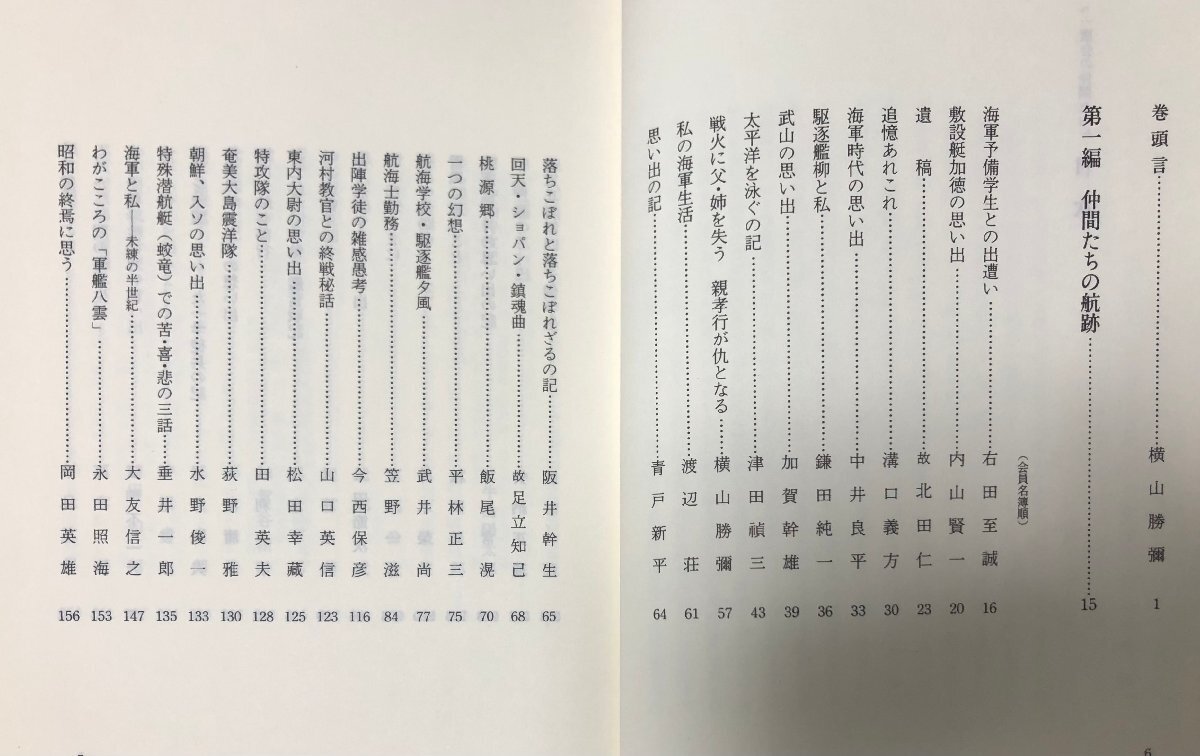 巻頭言……横山勝彌 1
第一編 仲間たちの航跡……15
(会員名簿順)
海軍予備学生との出遭い……右田至誠 16
敷設艇加徳の思い出……内山賢一 20
遺稿……故 北田仁 23
追憶あれこれ……溝口義方 30
海軍時代の思い出……中井良平 33
駆逐艦柳と私……鎌田純一 36
武山の思い出……加賀幹雄 39
太平洋を泳ぐの記……津田禎三 43
戦火に父・姉を失う 親孝行が仇となる……横山勝彌 57
私の海軍生活……渡辺荘 61
思い出の記……青戸新平 64
落ちこぼれと落ちこぼれざるの記……阪井幹生 65
回天・ショパン・鎮魂曲……故 足立知己 68
桃源郷……飯尾滉 70
一つの幻想……平林正三 75
航海学校・駆逐艦夕風……武井尚 77
航海士勤務……笠野滋 84
出陣学徒の雑感愚考……今西保彦 116
河村教官との終戦秘話……山口英信 123
東内大尉の思い出……松田幸蔵 125
特攻隊のこと……田英夫 128
奄美大島震洋隊……荻野雅 130
朝鮮、入ソの思い出……水野俊一 133
特殊潜航艇(蛟竜)での苦・喜・悲の三話……垂井一郎 135
海軍と私――未練の半世紀……大友信之 147
わがこころの「軍艦八雲」……永田照海 153
昭和の終焉に思う……岡田英雄 156
6